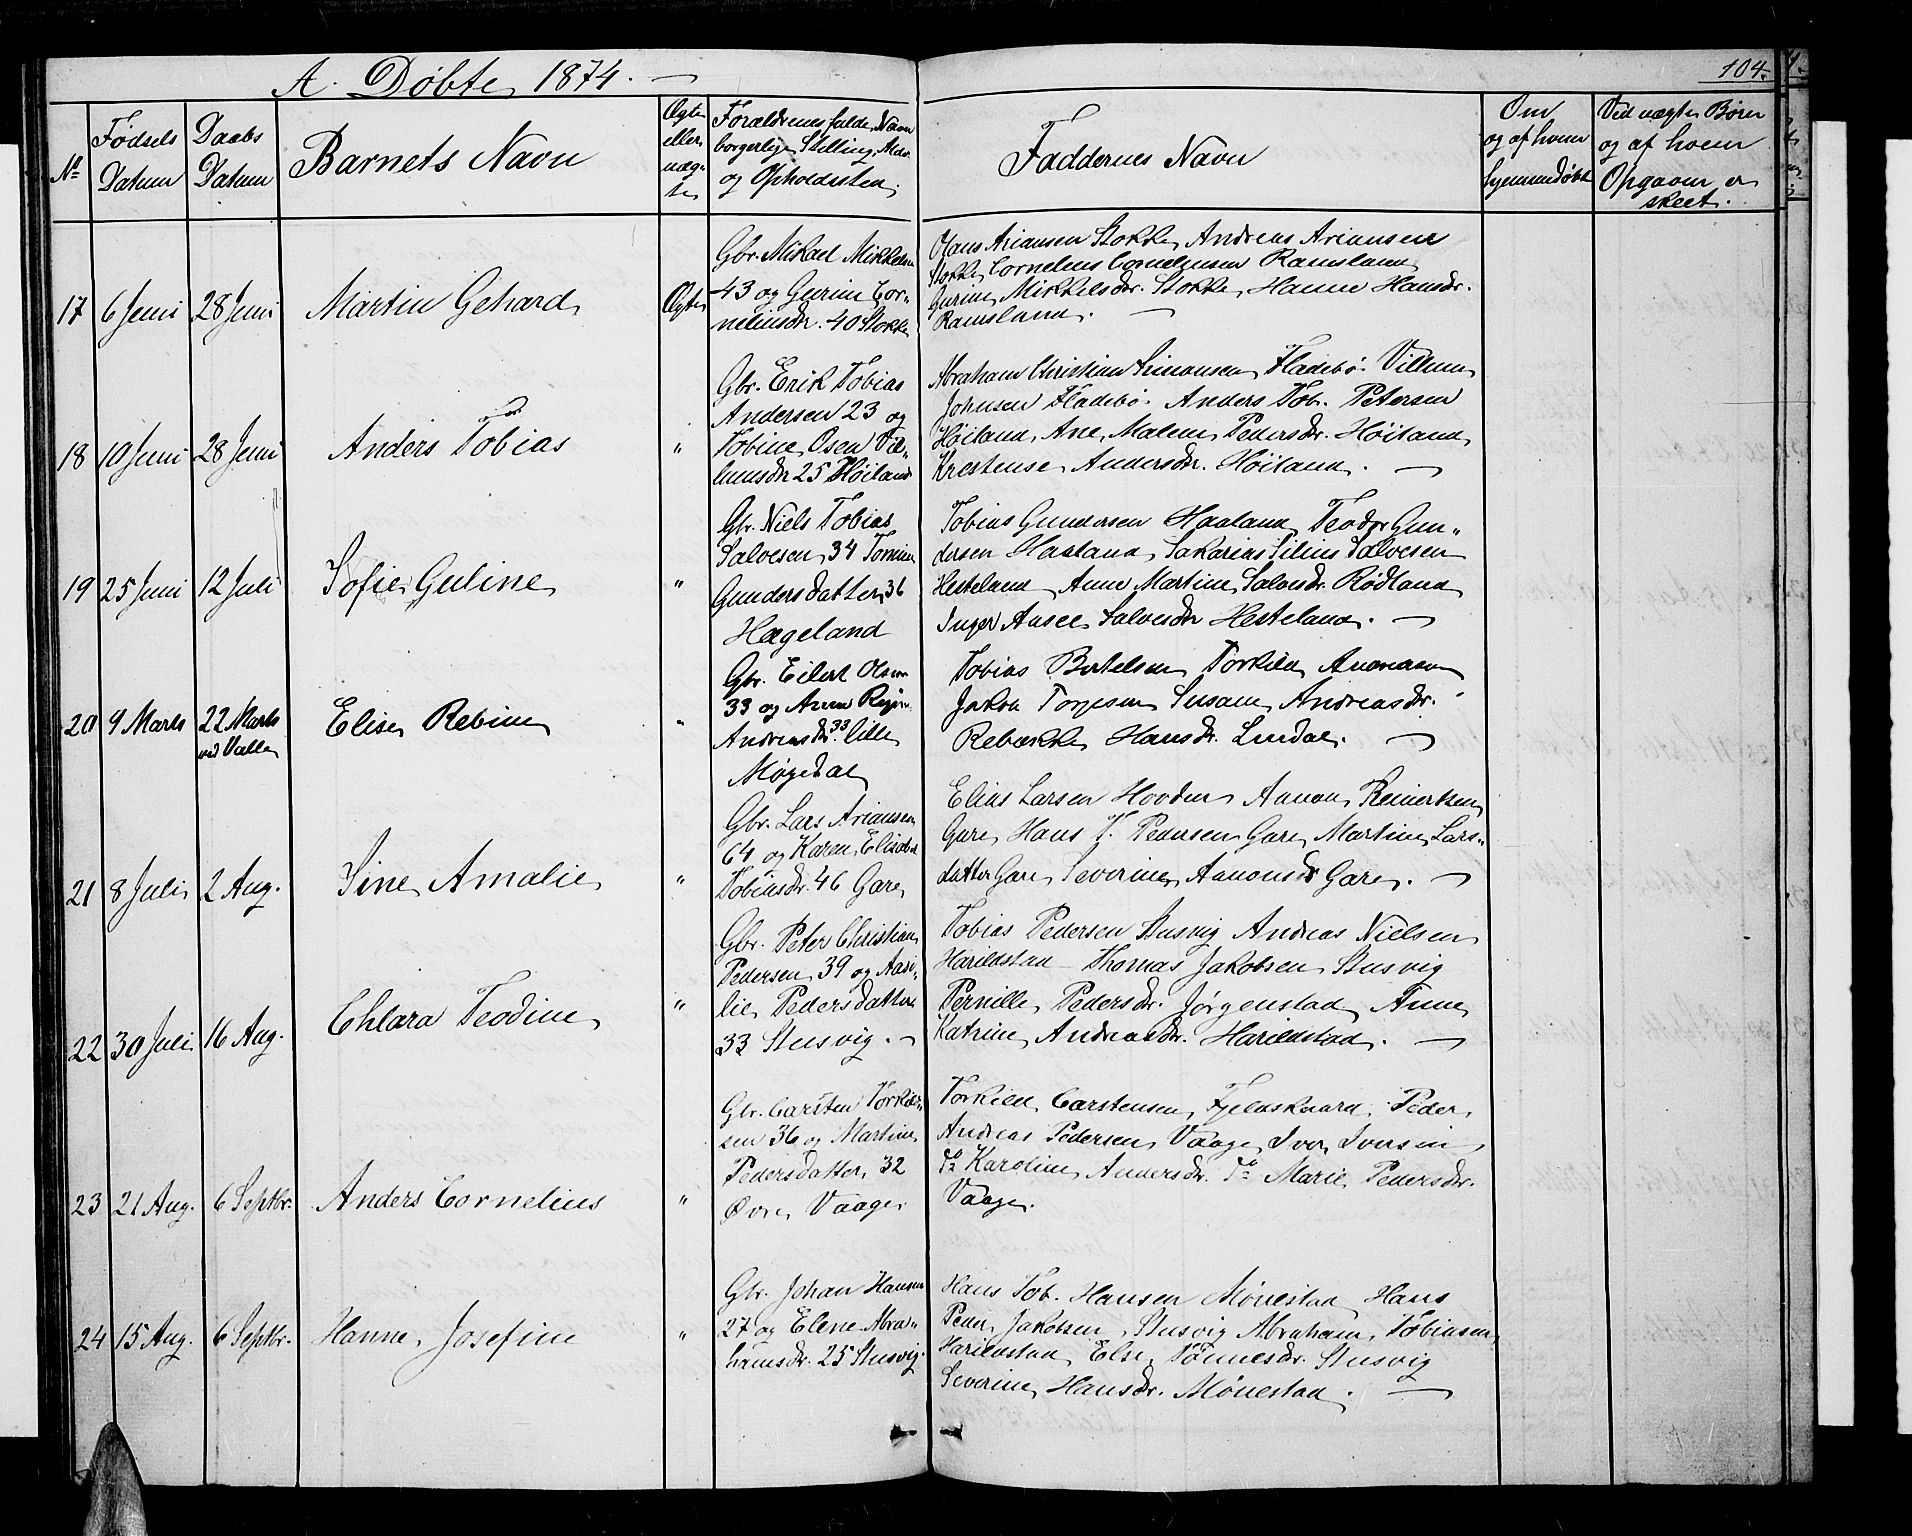 A. Döbte 1874.
104.
No
Fødsels
Datum
Daabs
Datum
Barnets Navn
Ægte
eller
uæg-
te
Forældrenes fulde Navn
borgerlige Stilling, Alder
og Opholdssted.
Faddernes Navn
Om
og af hvem
hjemmedøbt
Ved uægte Børn
og af hvem
Opgaven er
skeet.
17 6 Juni 28 Juni Martin Gehard Ægte
Gbr. Mikael Mikkelsen
43 og Gurine Cor-
neliusdr. 40 Stokke
Hans Ariansen Stokke, Andreas Ariansen
Stokke Cornelius Corneliusen Ramsland
Gurine Mikkelsdr. Stokke, Hanne Hansdr.
Ramsland.
18 10 Juni 28 Juni Anders Tobias "
Gbr. Erik Tobias
Andersen 23 og
Tobine Osen Vil-
lumsdr 25 Høiland
Abraham Christian Simonsen Fladebö. Villum
Johnsen Fladebö. Anders Tob. Petersen
Høiland, Ane Malene Pedersdr. Høiland
Krestense Andersdr. Høiland.
19 25 Juni 12 Juli Sofie Guline "
Gbr. Niels Tobias
Salvesen 34 Tomine
Gundersdatter 36
Hægeland
Tobias Gundersen Haaland Teodor Gun-
dersen Haaland, Sakarias Silius Salvesen
Hesteland Anne Martine Salvesdr Rødland
Inger Aasee Salvesdr Hesteland.
20 9 Marts 22 Marts
ved Valle
Elise Rebine "
Gbr. Eilert Olsen
33 og Anne Regine
Andreasdr. 33. lille
Møgedal
Tobias Bertelsen Torkild Aanonsen
Jakob Torjesen Susane Andreasdr.
Rebække Hansdr. Lindal.
21 8 Juli 2 Aug. Sine Amalie "
Gbr. Lars Ariansen
64 og Karen Elisabet
Tobiasdr. 46 Gare
Elias Larsen Hovden Aanon Reinertsen
Gare Hans K. Pedersen Gare, Martine Lars-
datter Gare Severine Aanonsdr Gare.
22 30 Juli 16 Aug. Chlara Teodine "
Gbr. Peter Christian
Pedersen 39 og Aasi-
lie Pedersdatter
33 Stusvig.
Tobias Pedersen Stusvig Andreas Nielsen
Harildstad Thomas Jakobsen Stusvig
Pernille Pedersdr. Jørgenstad Anne
Katrine Andreasdr. Harildstad.
23 21 Aug. 6 Septbr. Anders Cornelius "
Gbr. Carsten Torkild-
sen 36 og Martine
Pedersdatter 32
Øvre Vaage
Torkild Carstensen Fjeldskaard, Peder
Andreas Pedersen Vaage Iver Iversen
do Karoline Andersdr. do Marie Pedersdr.
Vaage.
24 15 Aug. 6 Septbr. Hanne Josefine "
Gbr. Johan Hansen
27 og Elene Abra-
hamsdr. 25 Stusvig.
Hans Tob. Hansen Mönestad Hans
Peder Jakobsen Stusvig Abraham Tobiasen
Harildstad Else Tönnesdr. Stusvig
Severine Hansdr. Mönestad.